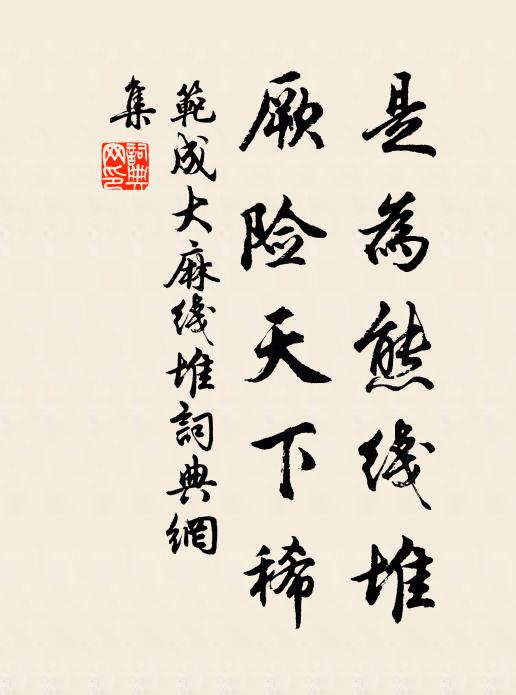 是為熊线堆
厥险天下稀
範成大麻线堆詞典網
集
詞典
网印